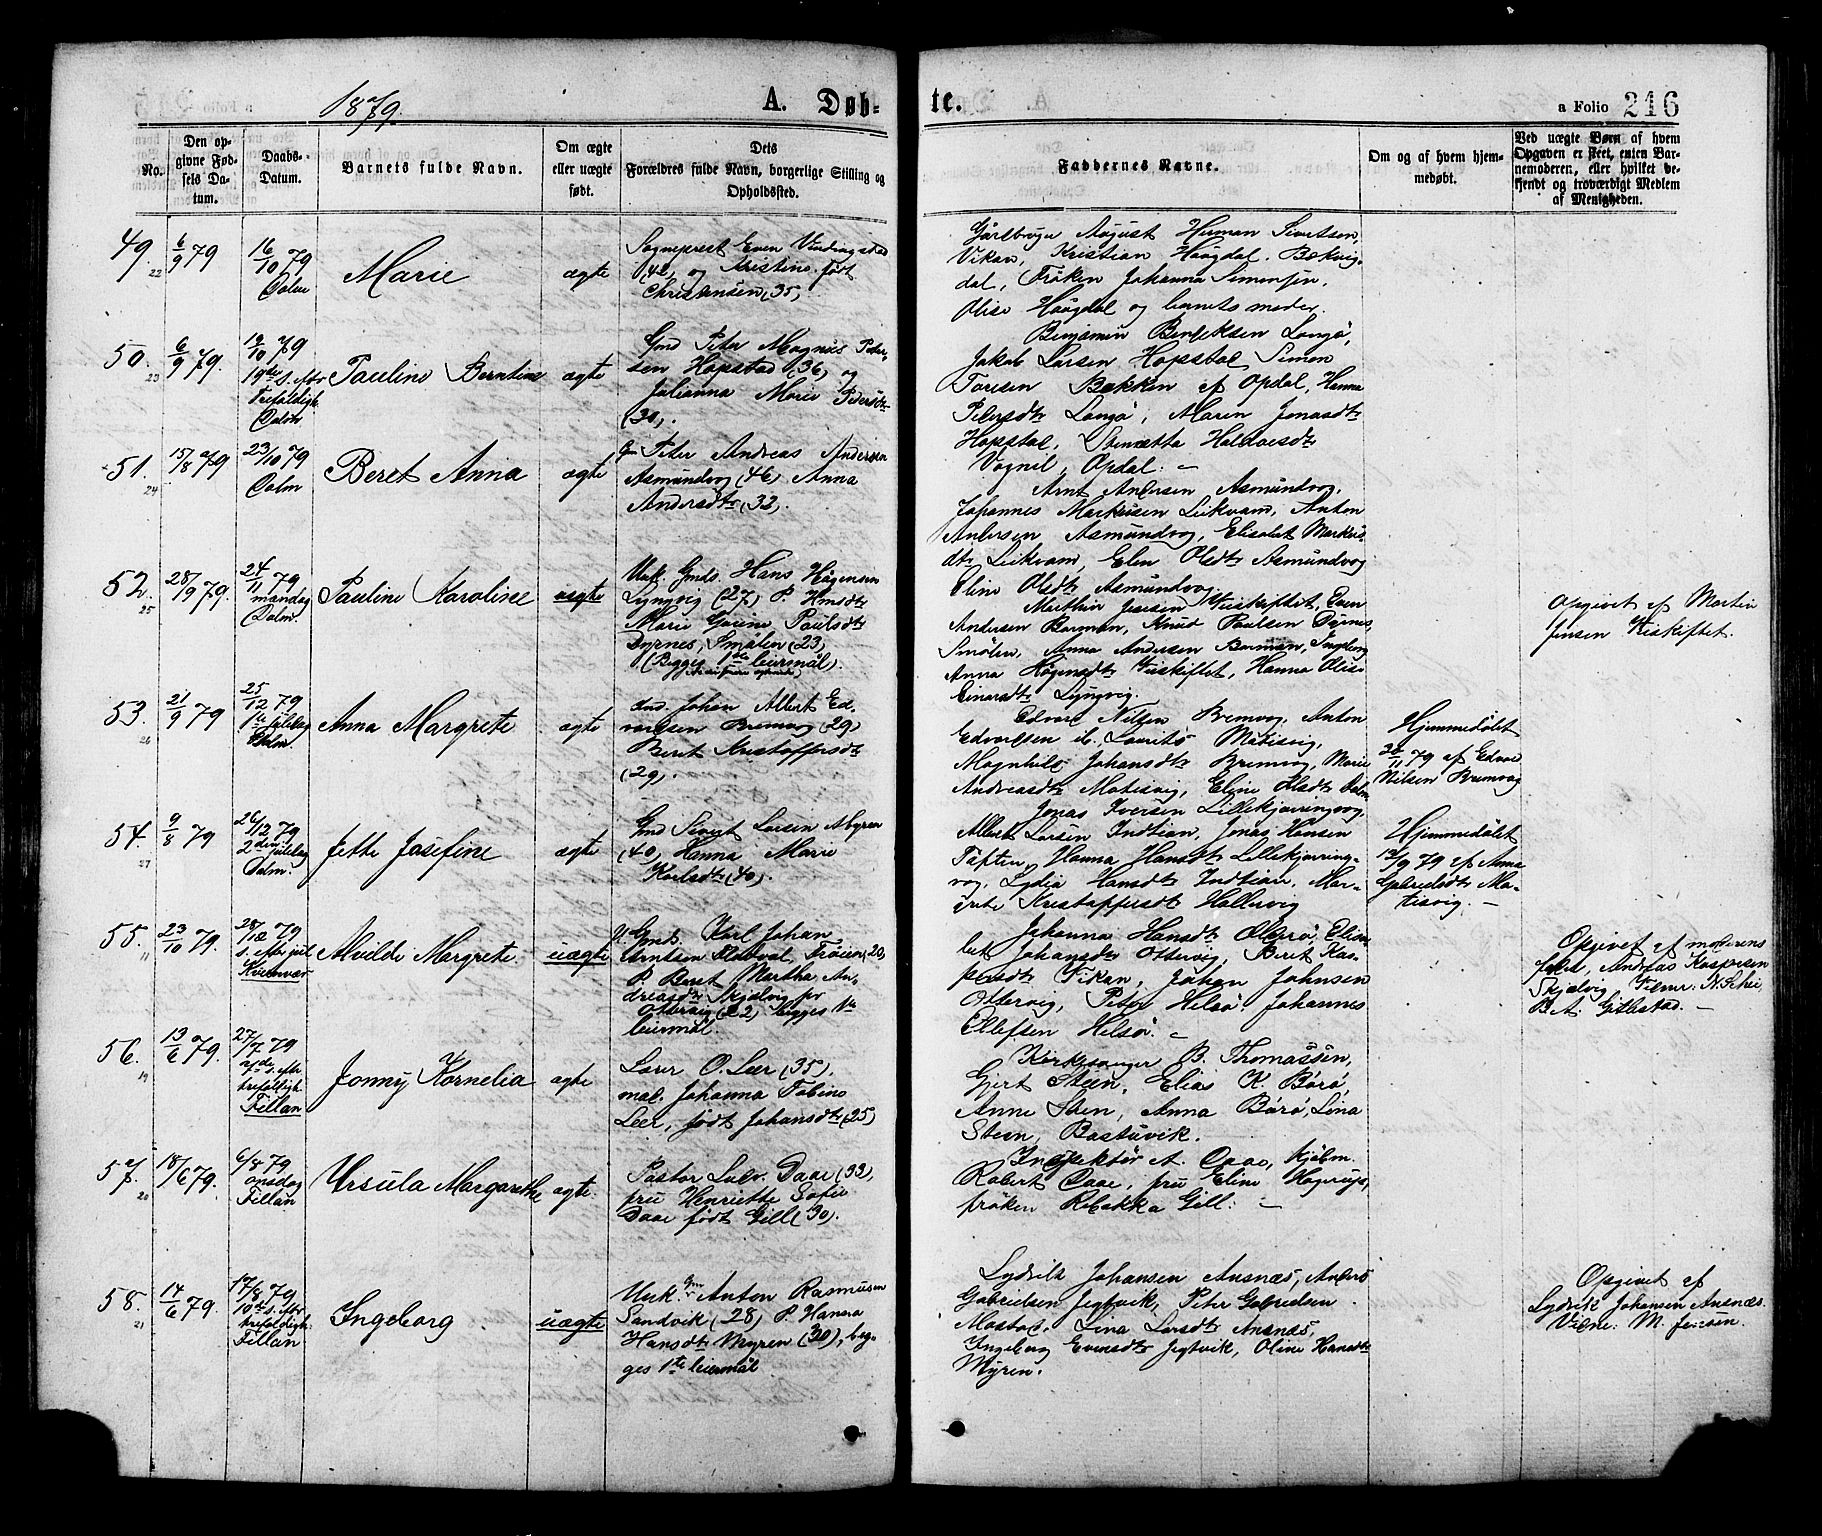 1879.
A. Døb-
te.
a Folio 216
No.
Den op-
givne Fød-
sels Da-
tum.
Daabs-
Datum.
Barnets fulde Navn.
Om ægte
eller uægte
født.
Dets
Forældres fulde Navn, borgerlige Stilling og
Opholdssted.
Faddernes Navne.
Om og af hvem hjem-
medøbt.
Ved uægte Børn af hvem
Opgaven er skeet, enten Bar-
nemoderen, eller hvilket be-
kjendt og troværdigt Medlem
af Menigheden.
49.
22
6/9 79
16/10 79
Dolm
Marie
ægte
Sogneprest Even
(42) og Kristine født
Christensen (35)
August Herman Sivertsen,
Vikan, Kristian Haugdal. Bekvig-
dal, Frøken Johanna Simonsen,
Olise Haugdal og barnets moder.
50.
23
6/9 79.
19/10 79
19de s. eftr
trefoldigh.
Dolm
Pauline Berntine
ægte
Gmd Peter Magnus Peter-
sen Hopstad (36) og
Johanna Marie Pedersdtr
(30).
Benjamin Bentsen Langø,
Jakob Larsen Hopstad Simon
Toresen Bækken af Opdal, Hanna
Petersdtr Langø, Maren Jonasdtr
Hopstad, Haldorsdtr
Vognil, Opdal. —
51.
24
15/8 79
23/10 79
Dolm
Beret Anna
ægte
Gm Peter Andreas Andersen
Asmundvog (46) Anna
Andersdtr (32).
Arnt Andersen Asmundvog,
Johannes Markusen Leikvam, Anton
Andersen Asmundvog, Elisabet Markus-
dtr Leikvam, Elen Olsdtr Asmundvog
Eline Olsdtr Asmundvog
52.
25
28/9 79.
24/11 79
mandag
Dolm.
Pauline Karoline
uægte
Unk. Gmds. Hans Hågensen
Lyngvig (27) P. Hmsdtr
Marie Gurine Paulsdtr
Dyrnes, Smølen (23)
(Begges 1ste leiermål).
Marthin Jensen Kiskiftet, Even
Andersen Borman, Knud Paulsen Dyrnes,
Smølen, Anna Andersen Borman, Ingeborg
Anna Høgensdtr Kiskiftet, Hanna Olise
Einarsdtr Lyngvig.
Opgivet af Martin
Jensen Kiskiftet.
53.
26
21/9 79
25/12 79
1ste juledag
Dolm.
Anna Margrete
ægte
Gmd. Johan Albert Ed-
vardsen Bremvog (29)
Berit Kristoffersdtr
(29).
Edvard Nilsen Bremvog, Anton
Edvardsen ib., Laurits Matisvig,
Magnhild Johansdtr Bremvog, Marie
Andreasdtr Matisvig, Eline Olsdtr Dolm
Hjemmedøbt
28/11 79 af Edvard
Nilsen Bremvog
54.
27
9/8 79
26/12 79
2den juledag
Dolm.
Jette Josefine
ægte
Gmd Sivert Larsen Myren
(40) Hanna Marie
Karlsdtr (40).
Jonas Iversen Lillekjerringvog,
Albert Larsen Indtian, Jonas Hansen
Toften, Hanna Hansdtr Lillekjerring-
vog, Lydia Hansdtr Indtian, Mar-
grete Kristoffersdtr Hallervig
Hjemmedøbt
12/9 79 af Anna
Gabrielsdtr Ma-
tisvig. —
55.
11
23/10 79.
28/12 79
s. efter jul
Kvernvær
Alvilde Margrete
uægte
Gmds. Karl Johan
Arntsen Frøien (20)
P. Beret Martha An-
dreasdtr Skjelvig pr
Ottervig (22) begges 1ste
leiermål.
Johanna Hansdtr Olderø, Elisa-
bet Johansdtr Ottervig, Berit Kas-
persdtr Titran, Johan Johnsen
Ottervig, Peter Helsø, Johannes
Ellefsen Helsø. —
Opgivet af moderens
fader, Andreas Kaspersen
Skjelvig Vidner: N. Schei,
B. A. Gilbstad. —
56.
19
13/6 79.
27/7 79
7de s. eftr
trefoldigh.
Fillan
Jonny Kornelia
ægte
Lærer O. Leer (35).
mad. Johanna Tobine
Leer, født Johansdtr (25)
Kirkesanger B. Thomassen,
Gjert Steen, Elias K. Børø,
Anne Sten, Anna Børø, Lina
Steen, Bastuvik.
57.
20
18/6 79.
6/8 79
onsdag
Fillan
Ursula Margarethe
ægte.
Pastor Ludv. Daae (33)
fru Henriette Sofie
Daae født Gill (30).
Inspektør A. Daae, Kjøbm.
Robert Daae, fru Eline Hagerup,
frøken Rebekka Gill. —
58.
21
14/6 79.
17/8 79
10de s. eftr
trefoldigh.
Fillan
Ingeborg
uægte
Unk. Gm Anton Rasmusen
Sandvik (28) P. Hanna
Hansdtr Myren (30), beg-
ges 1ste leiermål
Lydrik Johansen Ansnæs, Anders
Gabrielsen Jegtvik, Peter Gabrielsen
Mastad, Lina Larsdtr Ansnæs,
Ingeborg Evensdtr Jegtvik, Oline Hansdtr
Myren.
Opgivet af
Lydrik Johansen Ansnæs.
Vidne: M. Jensen.